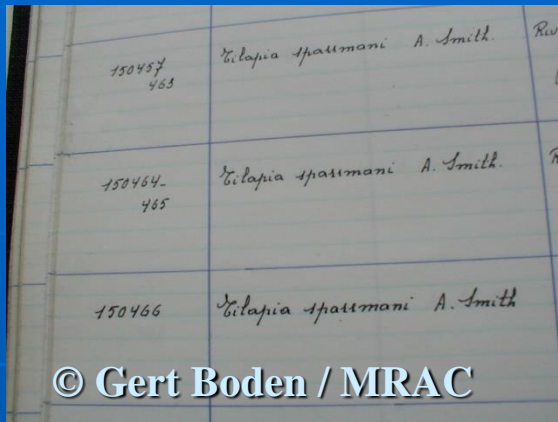 150457 Tilapia sparrmani A. Smith.
463
150464- Tilapia sparrmani A. Smith.
465
150466 Tilapia sparrmani A. Smith
© Gert Boden / MRAC